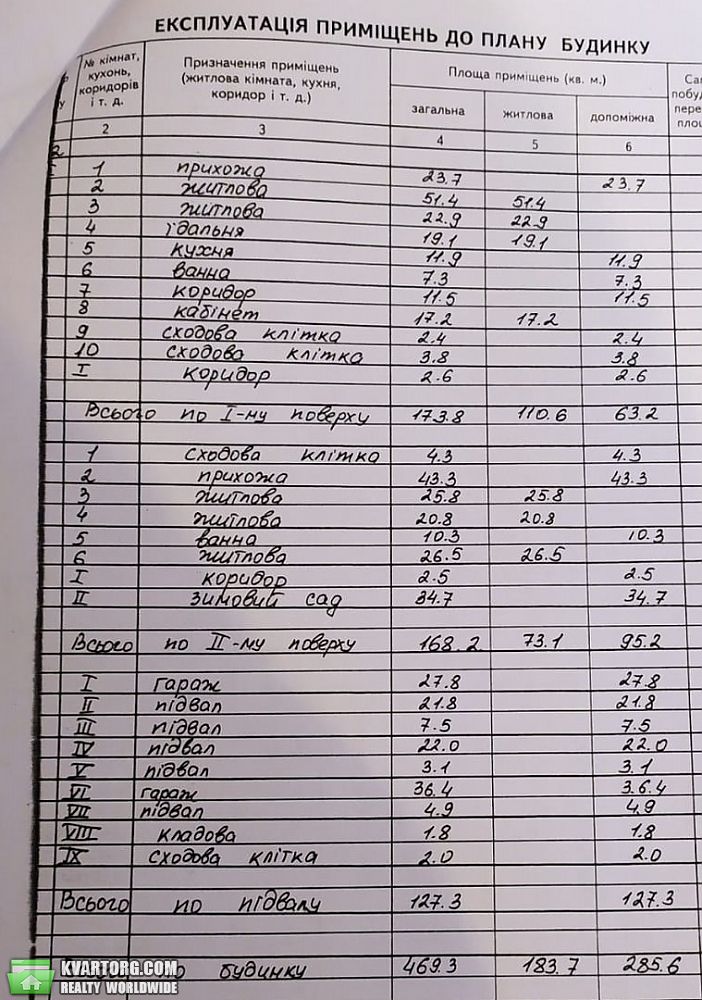 ЕКСПЛУАТАЦІЯ ПРИМІЩЕНЬ ДО ПЛАНУ БУДИНКУ
№ кімнат, кухонь, коридорів і т. д.
Призначення приміщень (житлова кімната, кухня, коридор і т. д.)
Площа приміщень (кв. м.)
загальна житлова допоміжна
2 3 4 5 6
1 прихожа 23.7 23.7
2 житлова 51.4 51.4
3 житлова 22.9 22.9
4 їдальня 19.1 19.1
5 кухня 11.9 11.9
6 ванна 7.3 7.3
7 коридор 11.5 11.5
8 кабінет 17.2 17.2
9 сходова клітка 2.4 2.4
10 сходова клітка 3.8 3.8
I коридор 2.6 2.6
Всього по I-му поверху 173.8 110.6 63.2
1 сходова клітка 4.3 4.3
2 прихожа 43.3 43.3
3 житлова 25.8 25.8
4 житлова 20.8 20.8
5 ванна 10.3 10.3
6 житлова 26.5 26.5
I коридор 2.5 2.5
II зимовий сад 34.7 34.7
Всього по II-му поверху 168.2 73.1 95.2
I гараж 27.8 27.8
II підвал 21.8 21.8
III підвал 7.5 7.5
IV підвал 22.0 22.0
V підвал 3.1 3.1
VI гараж 36.4 3.6.4
VII підвал 4.9 4.9
VIII кладова 1.8 1.8
IX сходова клітка 2.0 2.0
Всього по підвалу 127.3 127.3
будинку 469.3 183.7 285.6
KVARTORG.COM
REALTY WORLDWIDE